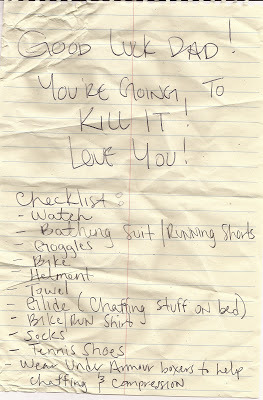 GOOD LUCK DAD!
YOU'RE GOING TO
KILL IT!
LOVE YOU!
Checklist:
- Watch
- Bathing Suit/Running Shorts
- Goggles
- Bike
- Helment
- Towel
- Glide (Chaffing stuff on bed)
- Bike/Run Shirt
- Socks
- Tennis Shoes
- Wear Under Armour boxers to help
chaffing & compression